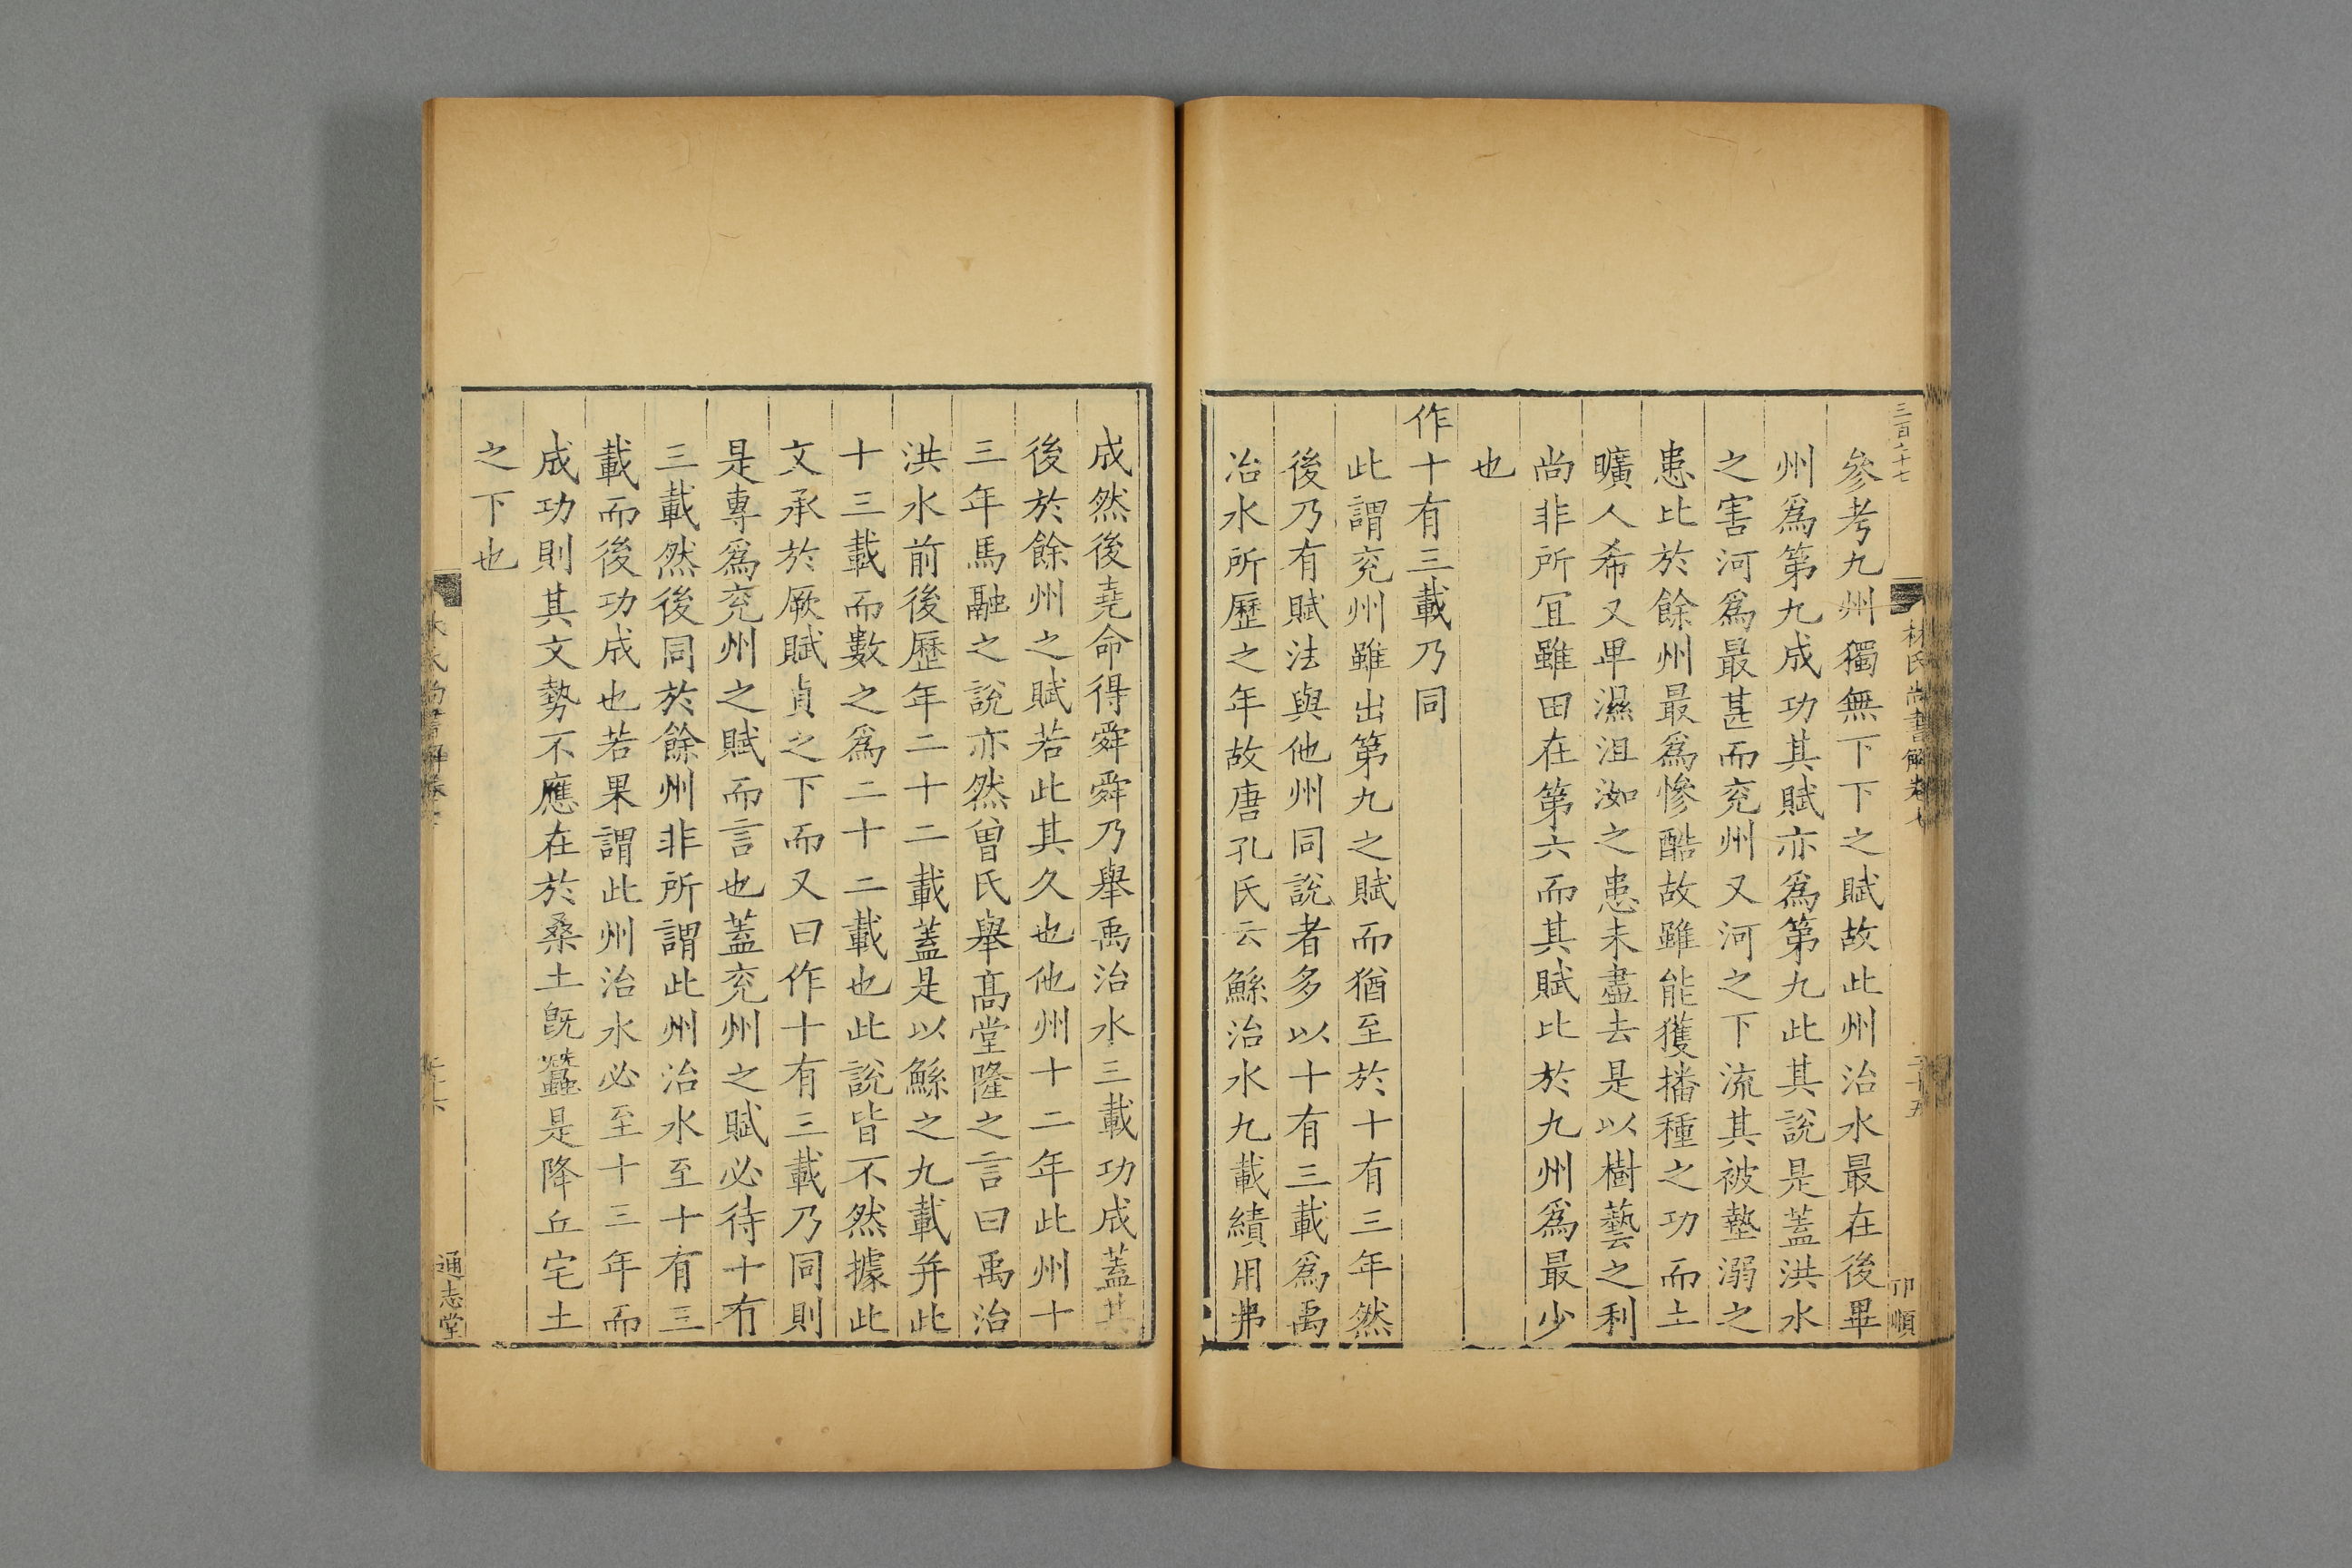 參考九州獨無下下之賦故此州治水最在後畢
州爲第九成功其賦亦爲第九此其說是蓋洪水
之害河爲最甚而兖州又河之下流其被墊溺之
患比於餘州最爲慘酷故雖能獲播種之功而土
曠人希又卑濕沮洳之患未盡去是以樹藝之利
尚非所宜雖田在第六而其賦比於九州爲最少
也
作十有三載乃同
此謂兖州雖出第九之賦而猶至於十有三年然
後乃有賦法與他州同說者多以十有三載爲禹
治水所歷之年故唐孔氏云鯀治水九載績用弗
成然後堯命得舜舜乃舉禹治水三載功成蓋其
後於餘州之賦若此其久也他州十二年此州十
三年馬融之說亦然曾氏舉髙堂隆之言曰禹治
洪水前後歷年二十二載蓋是以鯀之九載并此
十三載而數之爲二十二載也此說皆不然據此
文承於厥賦貞之下而又曰作十有三載乃同則
是專爲兖州之賦而言也蓋兖州之賦必待十有
三載然後同於餘州非所謂此州治水至十有三
載而後功成也若果謂此州治水必至十三年而
成功則其文勢不應在於桑土旣蠶是降丘宅土
之下也
林氏尚書解卷七
卭順
通志堂